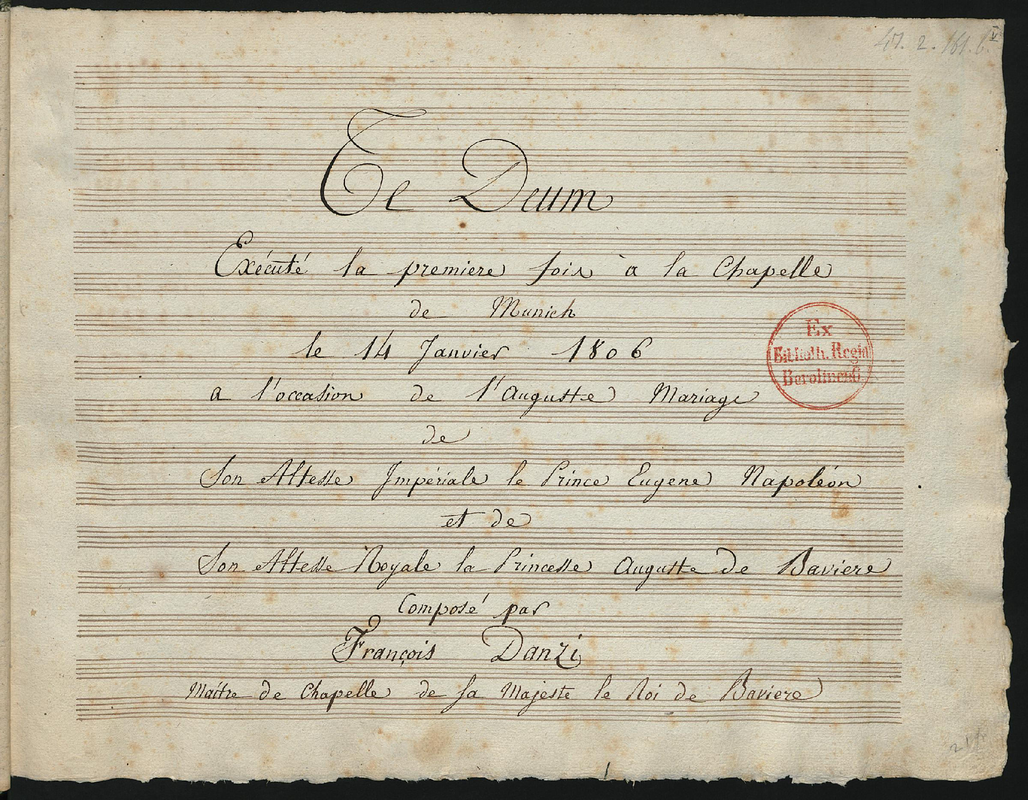 47. 2. 161. 6.
Te Deum
Exécuté la premiere fois a la Chapelle
de Munich
le 14 Janvier 1806
a l'occasion de l'Auguste Mariage
de
Son Altesse Impériale le Prince Eugene Napoléon
et de
Son Altesse Royale la Princesse Auguste de Baviere
Composé par
François Danzi
Maitre de Chapelle de sa Majeste le Roi de Baviere
Ex
Biblioth. Regia
Berolinensi